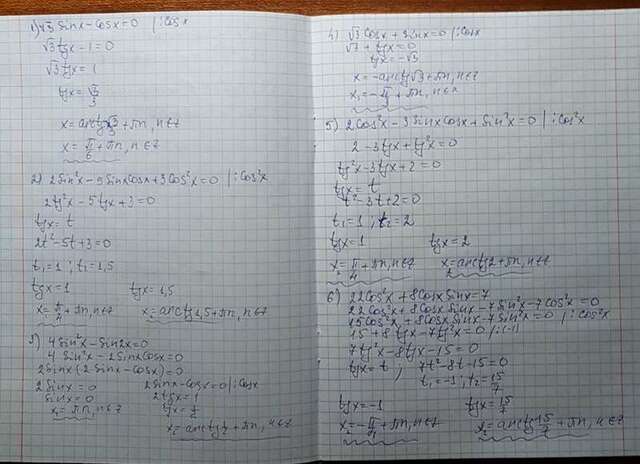 1) √3 sinx - cosx = 0 | : cosx
√3 tgx - 1 = 0
√3 tgx = 1
tgx = √3/3
x = arctg √3/3 + πn, n∈z
x = π/6 + πn, n∈z
2) 2sin²x - 5sinxcosx + 3cos²x = 0 | : cos²x
2tg²x - 5tgx + 3 = 0
tgx = t
2t² - 5t + 3 = 0
t₁ = 1 ; t₂ = 1,5
tgx = 1 tgx = 1,5
x = π/4 + πn, n∈z x = arctg1,5 + πn, n∈z
3) 4sin²x - sin2x = 0
4sin²x - 2sinxcosx = 0
2sinx(2sinx - cosx) = 0
2sinx = 0 2sinx - cosx = 0 | : cosx
sinx = 0 2tgx = 1
x₁ = πn, n∈z tgx = 1/2
x₂ = arctg 1/2 + πn, n∈z
4) √3 cosx + sinx = 0 | : cosx
√3 + tgx = 0
tgx = -√3
x = -arctg√3 + πn, n∈z
x₁ = -π/3 + πn, n∈z
5) 2cos²x - 3sinxcosx + sin²x = 0 | : cos²x
2 - 3tgx + tg²x = 0
tg²x - 3tgx + 2 = 0
tgx = t
t² - 3t + 2 = 0
t₁ = 1 ; t₂ = 2
tgx = 1 tgx = 2
x = π/4 + πn, n∈z x₂ = arctg2 + πn, n∈z
6) 22cos²x + 8cosxsinx = 7
22cos²x + 8cosxsinx - 7sin²x - 7cos²x = 0
15cos²x + 8cosxsinx - 7sin²x = 0 | : cos²x
15 + 8tgx - 7tg²x = 0 | : (-1)
7tg²x - 8tgx - 15 = 0
tgx = t ; 7t² - 8t - 15 = 0
t₁ = -1 ; t₂ = 15/7
tgx = -1 tgx = 15/7
x = -π/4 + πn, n∈z x₂ = arctg 15/7 + πn, n∈z